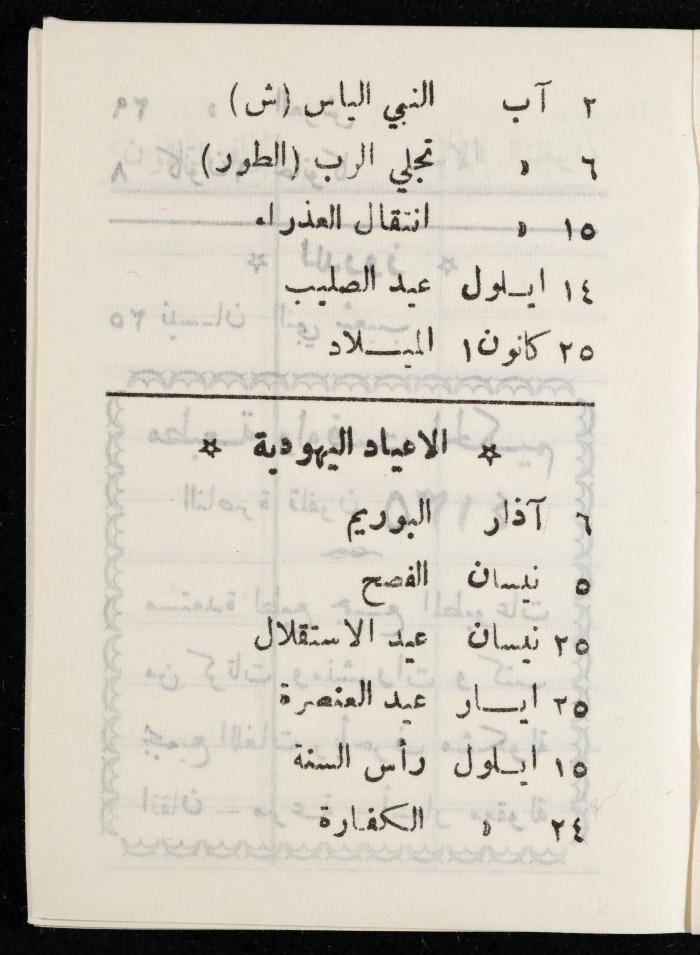 ٢ آب النبي الياس (ش)
٦ » تجلي الرب (الطور)
١٥ » انتقال العذراء
١٤ ايلول عيد الصليب
٢٥ كانون١ الميلاد
☆ الاعياد اليهودية ☆
٦ آذار البوريم
٥ نيسان الفصح
٢٥ نيسان عيد الاستقلال
٢٥ ايار عيد العنصرة
١٥ أيلول رأس السنة
٢٤ » الكفارة